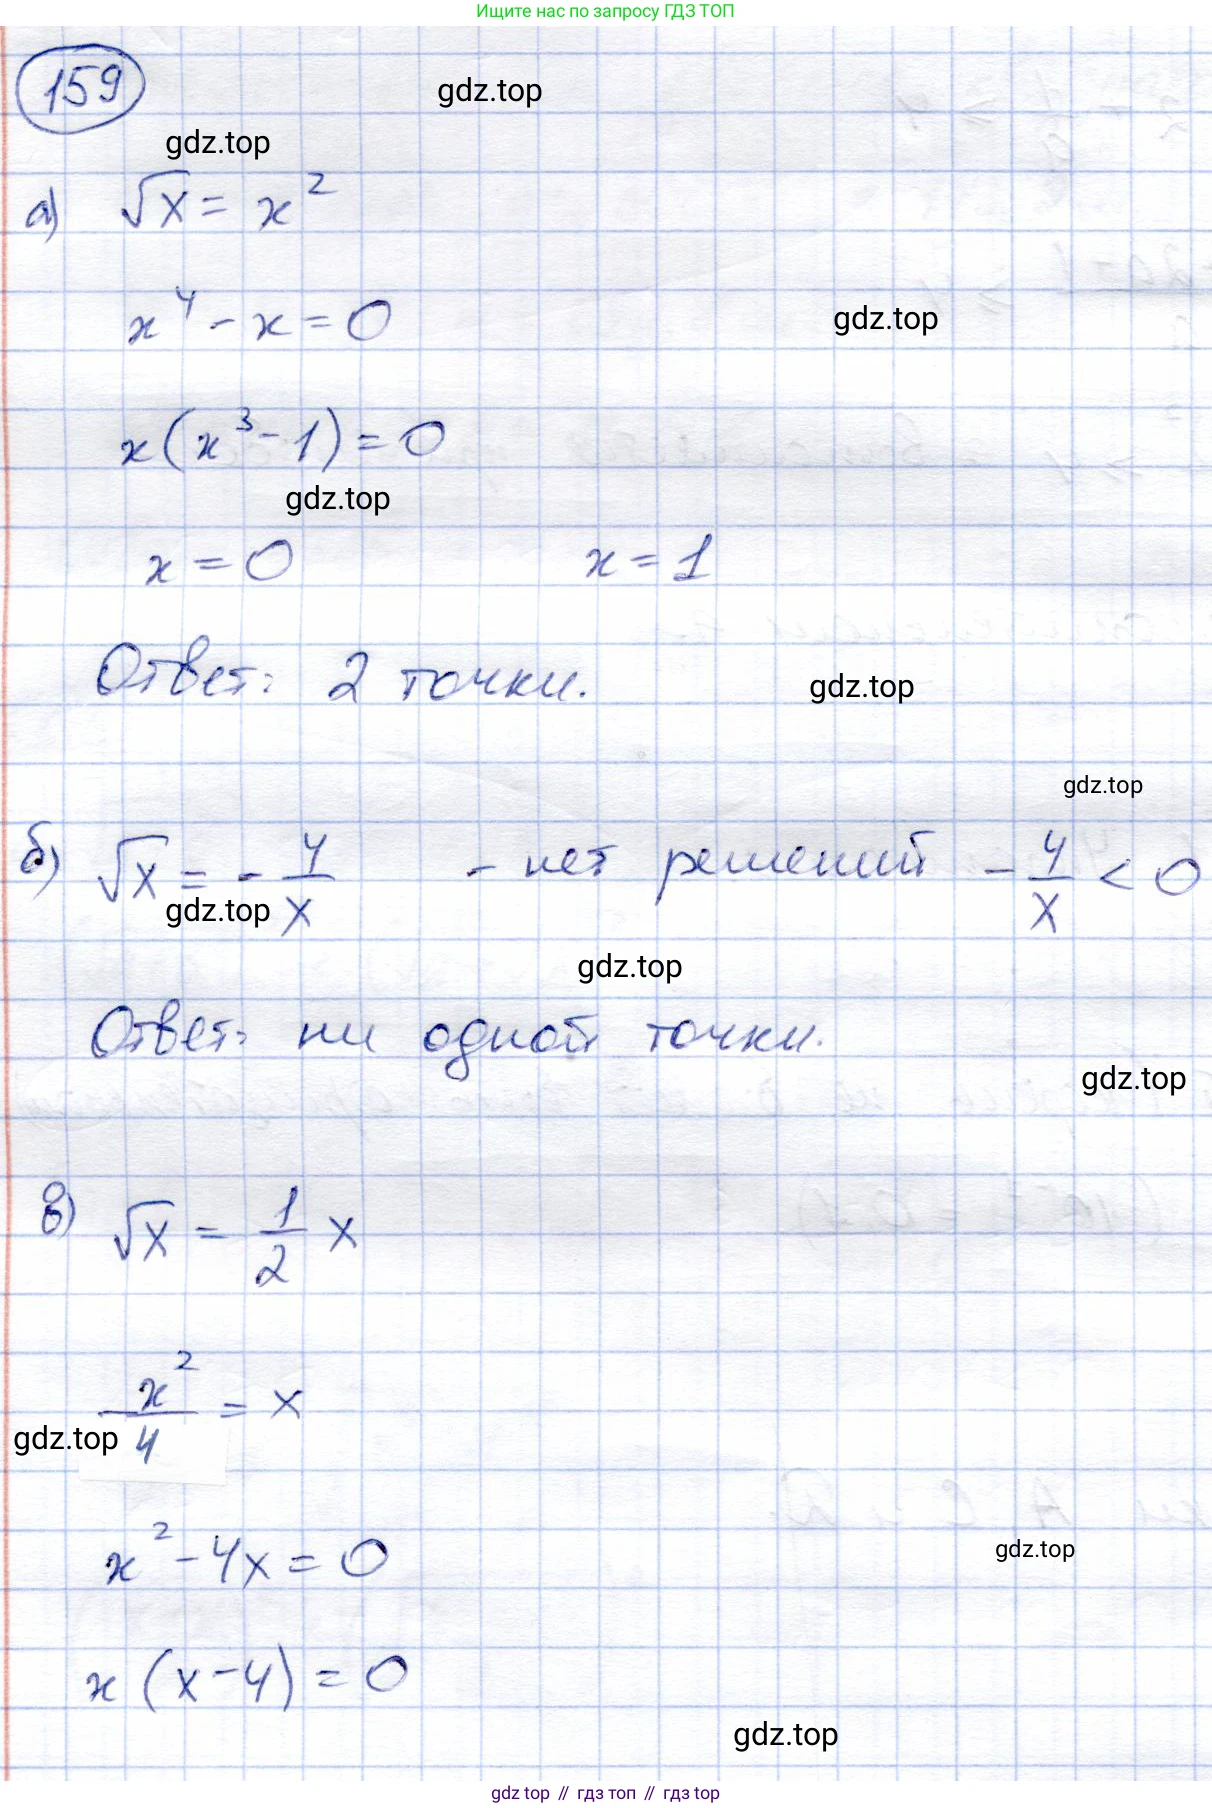 Ищите нас по запросу ГДЗ ТОП
159
gdz.top
gdz.top
а) √x = x²
x⁴ - x = 0
gdz.top
x(x³ - 1) = 0
gdz.top
x = 0 x = 1
Ответ: 2 точки.
gdz.top
gdz.top
б) √x = - 4/x - нет решений - 4/x < 0
gdz.top
gdz.top
Ответ: ни одной точки.
gdz.top
в) √x = 1/2 x
x²/4 = x
gdz.top
x² - 4x = 0
gdz.top
x(x - 4) = 0
gdz.top
gdz top // гдз топ // гдз top